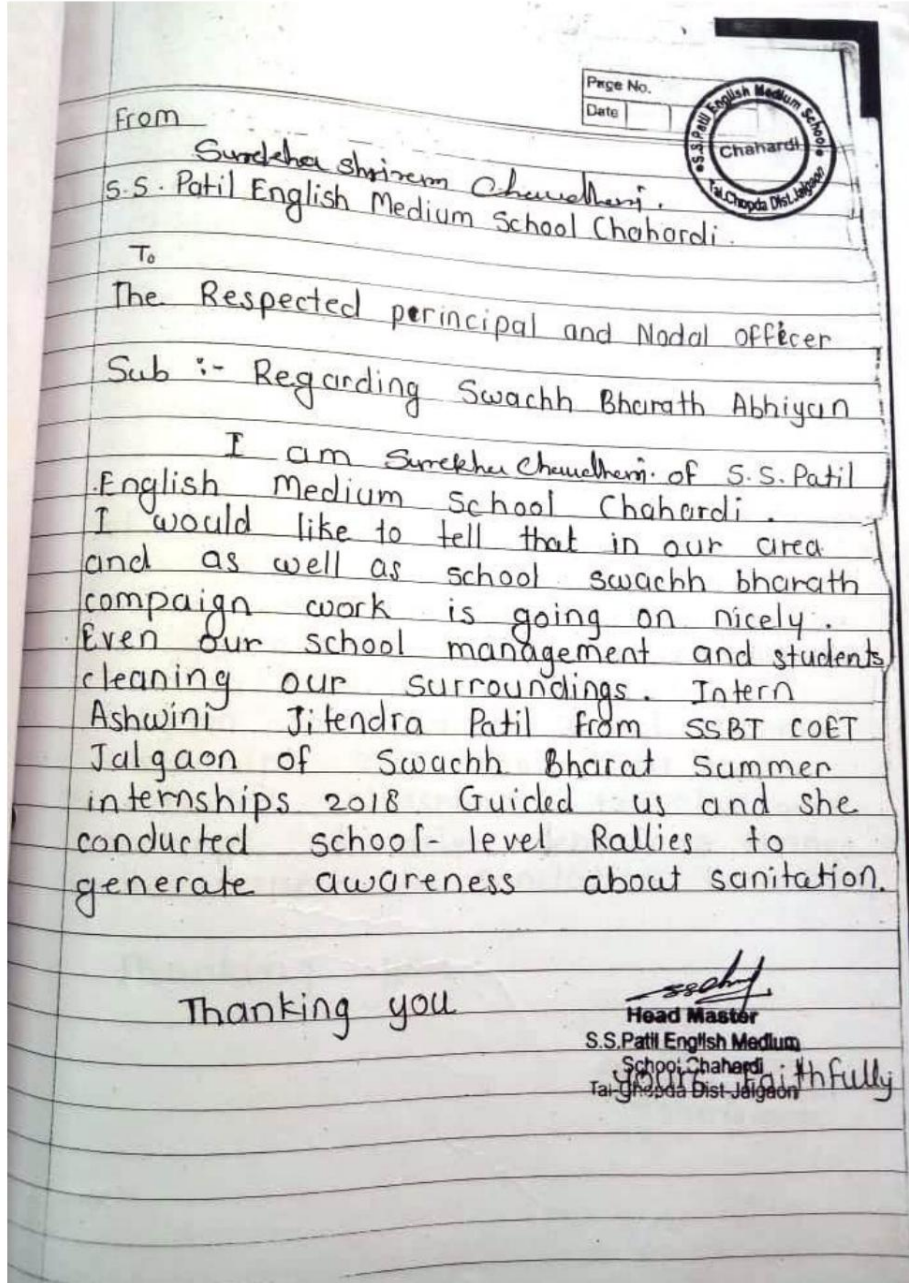 Page No.
Date
S.S.Patil English Medium School
Chahardi
Tal.Chopda Dist.Jalgaon
From
Surekha Shriram Chaudhari.
S.S. Patil English Medium School Chahardi.
To
The Respected perincipal and Nodal officer
Sub :- Regarding Swachh Bharath Abhiyan
I am Surekha Chaudhari. of S.S. Patil
English Medium School Chahardi.
I would like to tell that in our area
and as well as school swachh bharath
compaign work is going on nicely.
Even our school management and students
cleaning our surroundings. Intern
Ashwini Jitendra Patil from SSBT COET
Jalgaon of Swachh Bharat Summer
internships 2018 Guided us and she
conducted school-level Rallies to
generate awareness about sanitation.
Thanking you
Head Master
S.S.Patil English Medium
School Chahardi
Tal-Chopda Dist-Jalgaon
yours Faithfully